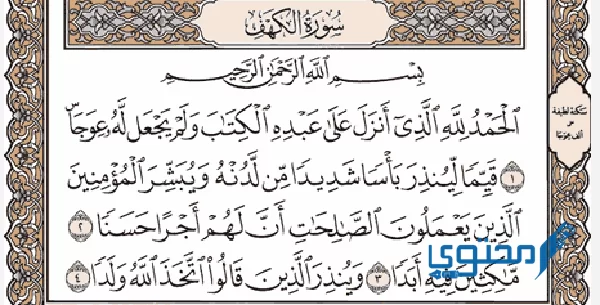 سُورَةُ الكَهْفِ
بِسْمِ ٱللَّهِ ٱلرَّحْمَٰنِ ٱلرَّحِيمِ
ٱلْحَمْدُ لِلَّهِ ٱلَّذِىٓ أَنزَلَ عَلَىٰ عَبْدِهِ ٱلْكِتَٰبَ وَلَمْ يَجْعَل لَّهُۥ عِوَجَاۜ
١ قَيِّمًا لِّيُنذِرَ بَأْسًا شَدِيدًا مِّن لَّدُنْهُ وَيُبَشِّرَ ٱلْمُؤْمِنِينَ
ٱلَّذِينَ يَعْمَلُونَ ٱلصَّٰلِحَٰتِ أَنَّ لَهُمْ أَجْرًا حَسَنًا ٢
مَّٰكِثِينَ فِيهِ أَبَدًا ٣ وَيُنذِرَ ٱلَّذِينَ قَالُوا۟ ٱتَّخَذَ ٱللَّهُ وَلَدًا ٤
سكتة لطيفة
ألف عوجا
محتوى